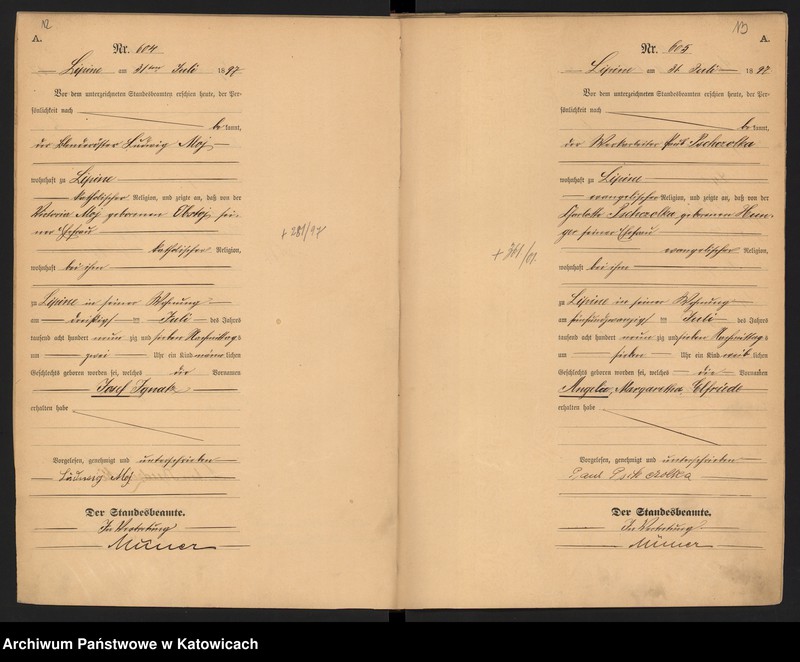 A.
Nr. 604
Lipine am 31ten Juli 1897
Vor dem unterzeichneten Standesbeamten erschien heute, der Per-
sönlichkeit nach
be kannt,
der Ludwig Moj
wohnhaft zu Lipine
katholischer Religion, und zeigte an, daß von der
Viktoria Moj geborenen sei-
ner Ehefrau
katholischer Religion,
wohnhaft bei ihm
zu Lipine in seiner Wohnung
am dreißigst en Juli des Jahres
tausend acht hundert neun zig und sieben Nachmittags
um zwei Uhr ein Kind männ lichen
Geschlechts geboren worden sei, welches die Vornamen
Josef Ignatz
erhalten habe
Vorgelesen, genehmigt und unterschrieben
Ludwig Moj
Der Standesbeamte.
In Vertretung
+ 281/97
A.
Nr. 605
Lipine am 31. Juli 1897
Vor dem unterzeichneten Standesbeamten erschien heute, der Per-
sönlichkeit nach
be kannt,
der Werkarbeiter Paul
wohnhaft zu Lipine
evangelischer Religion, und zeigte an, daß von der
Charlotte geborenen
seiner Ehefrau
evangelischer Religion,
wohnhaft bei ihm
zu Lipine in seiner Wohnung
am fünfundzwanzigst en Juli des Jahres
tausend acht hundert neun zig und sieben Nachmittags
um sieben Uhr ein Kind weib lichen
Geschlechts geboren worden sei, welches die Vornamen
Angela, Margaretha, Elfriede
erhalten habe
Vorgelesen, genehmigt und unterschrieben
Paul
Der Standesbeamte.
In Vertretung
Archiwum Państwowe w Katowicach